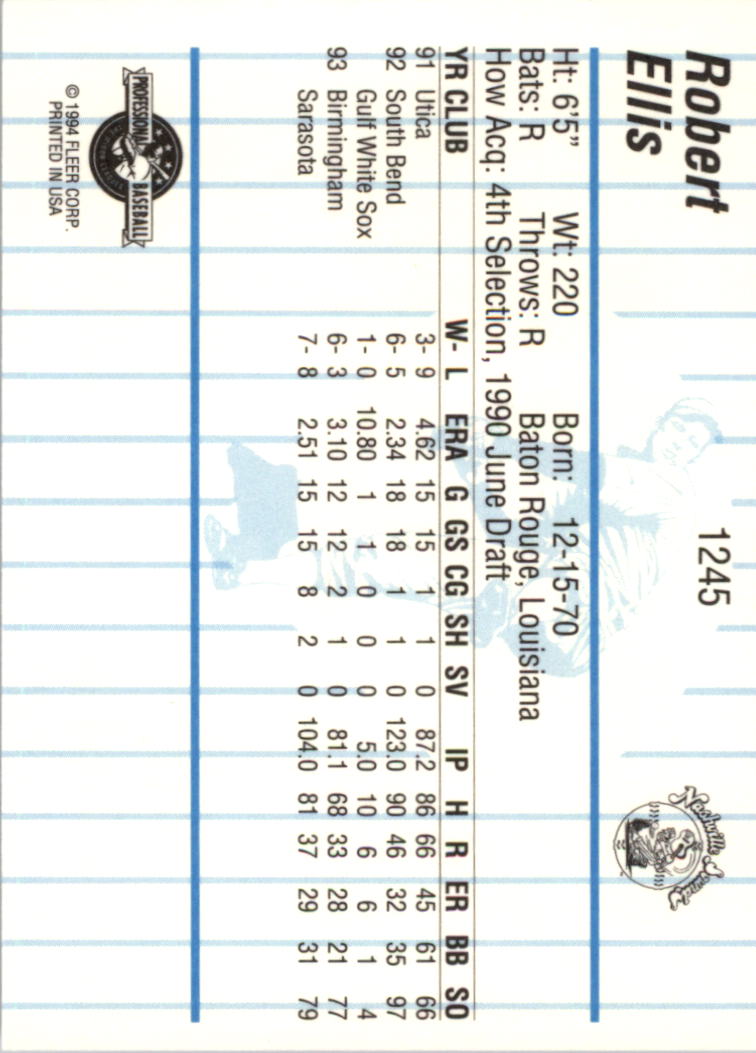 Robert
Ellis
1245
Nashville Sounds
Ht: 6'5" Wt: 220 Born: 12-15-70
Bats: R Throws: R Baton Rouge, Louisiana
How Acq: 4th Selection, 1990 June Draft
YR CLUB W- L ERA G GS CG SH SV IP H R ER BB SO
91 Utica 3- 9 4.62 15 15 1 1 0 87.2 86 66 45 61 66
92 South Bend 6- 5 2.34 18 18 1 1 0 123.0 90 46 32 35 97
Gulf White Sox 1- 0 10.80 1 1 0 0 0 5.0 10 6 6 1 4
93 Birmingham 6- 3 3.10 12 12 2 1 0 81.1 68 33 28 21 77
Sarasota 7- 8 2.51 15 15 8 2 0 104.0 81 37 29 31 79
PROFESSIONAL BASEBALL
© 1994 FLEER CORP.
PRINTED IN USA